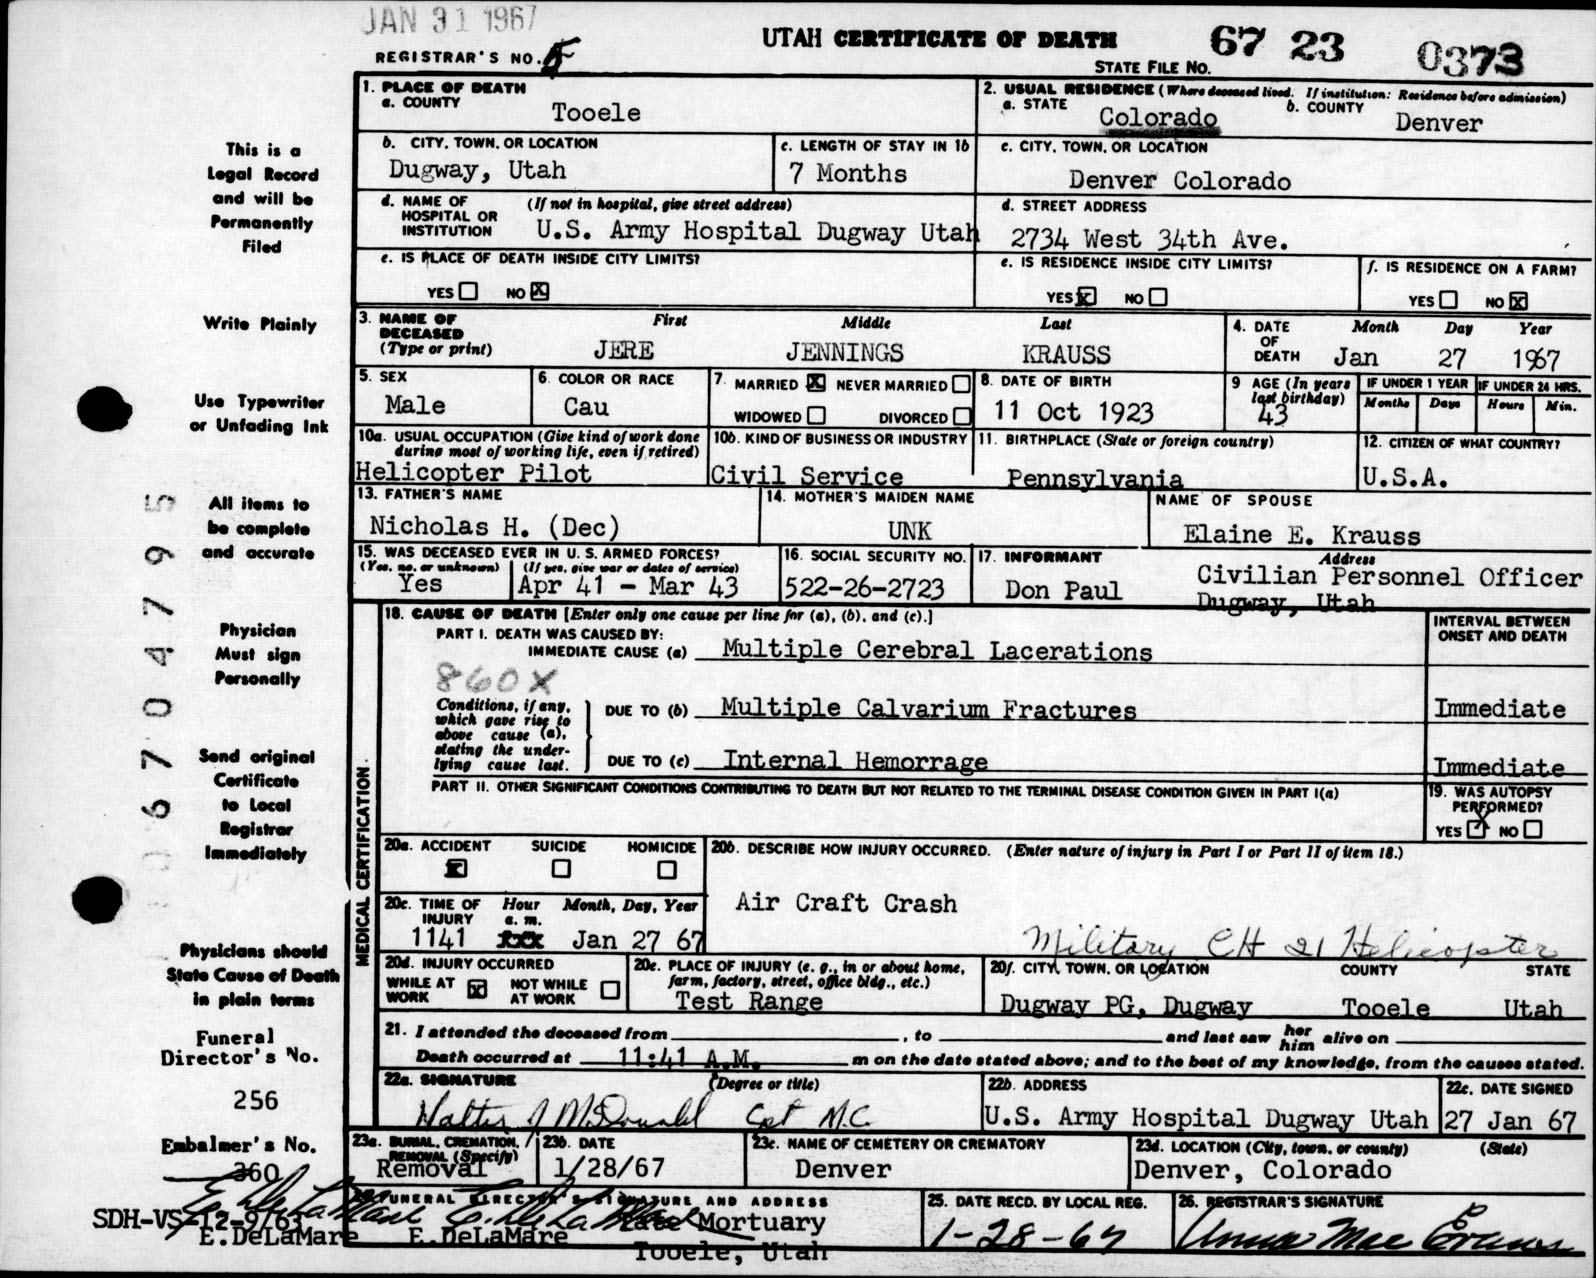 JAN 31 1967
REGISTRAR'S NO. 5
UTAH CERTIFICATE OF DEATH
STATE FILE NO. 67 23 0373
This is a
Legal Record
and will be
Permanently
Filed
Write Plainly
Use Typewriter
or Unfading Ink
All items to
be complete
and accurate
Physician
Must sign
Personally
Send original
Certificate
to Local
Registrar
Immediately
Physicians should
State Cause of Death
in plain terms
Funeral
Director's No.
256
Embalmer's No.
360
SDH-VS-12-9/63
E.DeLaMare
067047795
1. PLACE OF DEATH
a. COUNTY
Tooele
2. USUAL RESIDENCE (Where deceased lived. If institution: Residence before admission)
a. STATE Colorado b. COUNTY Denver
b. CITY, TOWN, OR LOCATION
Dugway, Utah
c. LENGTH OF STAY IN 1b
7 Months
c. CITY, TOWN, OR LOCATION
Denver Colorado
d. NAME OF HOSPITAL OR INSTITUTION (If not in hospital, give street address)
U.S. Army Hospital Dugway Utah
d. STREET ADDRESS
2734 West 34th Ave.
e. IS PLACE OF DEATH INSIDE CITY LIMITS?
YES NO X
e. IS RESIDENCE INSIDE CITY LIMITS?
YES X NO
f. IS RESIDENCE ON A FARM?
YES NO X
3. NAME OF DECEASED (Type or print)
First Middle Last
JERE JENNINGS KRAUSS
4. DATE OF DEATH Month Day Year
Jan 27 1967
5. SEX
Male
6. COLOR OR RACE
Cau
7. MARRIED X NEVER MARRIED
WIDOWED DIVORCED
8. DATE OF BIRTH
11 Oct 1923
9 AGE (In years last birthday)
43
IF UNDER 1 YEAR
Months Days
IF UNDER 24 HRS.
Hours Min.
10a. USUAL OCCUPATION (Give kind of work done during most of working life, even if retired)
Helicopter Pilot
10b. KIND OF BUSINESS OR INDUSTRY
Civil Service
11. BIRTHPLACE (State or foreign country)
Pennsylvania
12. CITIZEN OF WHAT COUNTRY?
U.S.A.
13. FATHER'S NAME
Nicholas H. (Dec)
14. MOTHER'S MAIDEN NAME
UNK
NAME OF SPOUSE
Elaine E. Krauss
15. WAS DECEASED EVER IN U. S. ARMED FORCES?
(Yes, no, or unknown) (If yes, give war or dates of service)
Yes Apr 41 - Mar 43
16. SOCIAL SECURITY NO.
522-26-2723
17. INFORMANT Address
Don Paul Civilian Personnel Officer
Dugway, Utah
MEDICAL CERTIFICATION
18. CAUSE OF DEATH [Enter only one cause per line for (a), (b), and (c).]
INTERVAL BETWEEN ONSET AND DEATH
PART I. DEATH WAS CAUSED BY:
IMMEDIATE CAUSE (a) Multiple Cerebral Lacerations
860X
Conditions, if any, which gave rise to above cause (a), stating the underlying cause last.
DUE TO (b) Multiple Calvarium Fractures Immediate
DUE TO (c) Internal Hemorrage Immediate
PART II. OTHER SIGNIFICANT CONDITIONS CONTRIBUTING TO DEATH BUT NOT RELATED TO THE TERMINAL DISEASE CONDITION GIVEN IN PART I(a)
19. WAS AUTOPSY PERFORMED?
YES X NO
20a. ACCIDENT SUICIDE HOMICIDE
X
20b. DESCRIBE HOW INJURY OCCURRED. (Enter nature of injury in Part I or Part II of item 18.)
Air Craft Crash
Military CH 21 Helicopter
20c. TIME OF INJURY Hour a. m. Month, Day, Year
1141 Jan 27 67
20d. INJURY OCCURRED
WHILE AT WORK X NOT WHILE AT WORK
20e. PLACE OF INJURY (e. g., in or about home, farm, factory, street, office bldg., etc.)
Test Range
20f. CITY, TOWN, OR LOCATION COUNTY STATE
Dugway PG, Dugway Tooele Utah
21. I attended the deceased from , to and last saw her him alive on
Death occurred at 11:41 A.M. m on the date stated above; and to the best of my knowledge, from the causes stated.
22a. SIGNATURE (Degree or title)
Walter J McDonald Cpt M.C.
22b. ADDRESS
U.S. Army Hospital Dugway Utah
22c. DATE SIGNED
27 Jan 67
23a. BURIAL, CREMATION, REMOVAL (Specify)
Removal
23b. DATE
1/28/67
23c. NAME OF CEMETERY OR CREMATORY
Denver
23d. LOCATION (City, town, or county) (State)
Denver, Colorado
FUNERAL DIRECTOR'S SIGNATURE AND ADDRESS
E. DeLaMare Mortuary
E.DeLaMare
Tooele, Utah
25. DATE RECD. BY LOCAL REG.
1-28-67
26. REGISTRAR'S SIGNATURE
Anna Mae Evans